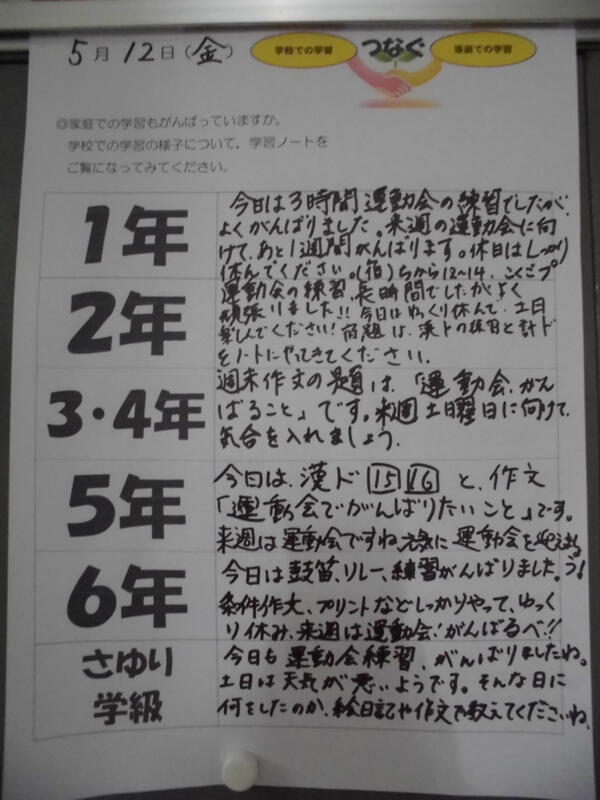 5月12日(金)
学校での学習
つなぐ
家庭での学習
◎家庭での学習もがんばっていますか。
学校での学習の様子について，学習ノートを
ご覧になってみてください。
1年
今日は3時間運動会の練習でしたが、
よくがんばりました。来週の運動会に向
けて、あと1週間がんばります。休日はしっかり
休んでください。(宿)ちから12〜14、こくごプ
2年
運動会の練習、長時間でしたがよく
頑張りました!!今日はゆっくり休んで、土日
楽しんでください!宿題は、漢ドの練習と計ド
をノートにやってきてください。
3・4年
週末作文の題は、「運動会、がん
ばること」です。来週土曜日に向けて、
気合を入れましょう。
5年
今日は、漢ド15 16と、作文
「運動会でがんばりたいこと」です。
来週は運動会ですね。元気に運動会を迎える
6年
今日は鼓笛、リレー、練習がんばりました。う!
条件作文、プリントなどしっかりやって、ゆっく
り休み、来週は運動会!がんばるべ!!
さゆり
学級
今日も運動会練習、がんばりましたね。
土日は天気が悪いようです。そんな日に
何をしたのか、絵日記や作文で教えてくださいね。